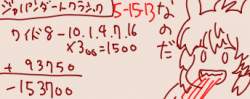 ジャパンダートクラシック
5-15-13
ワイド8-10.1.9.7.16
×300=1500
+93750
-153700
なのだ